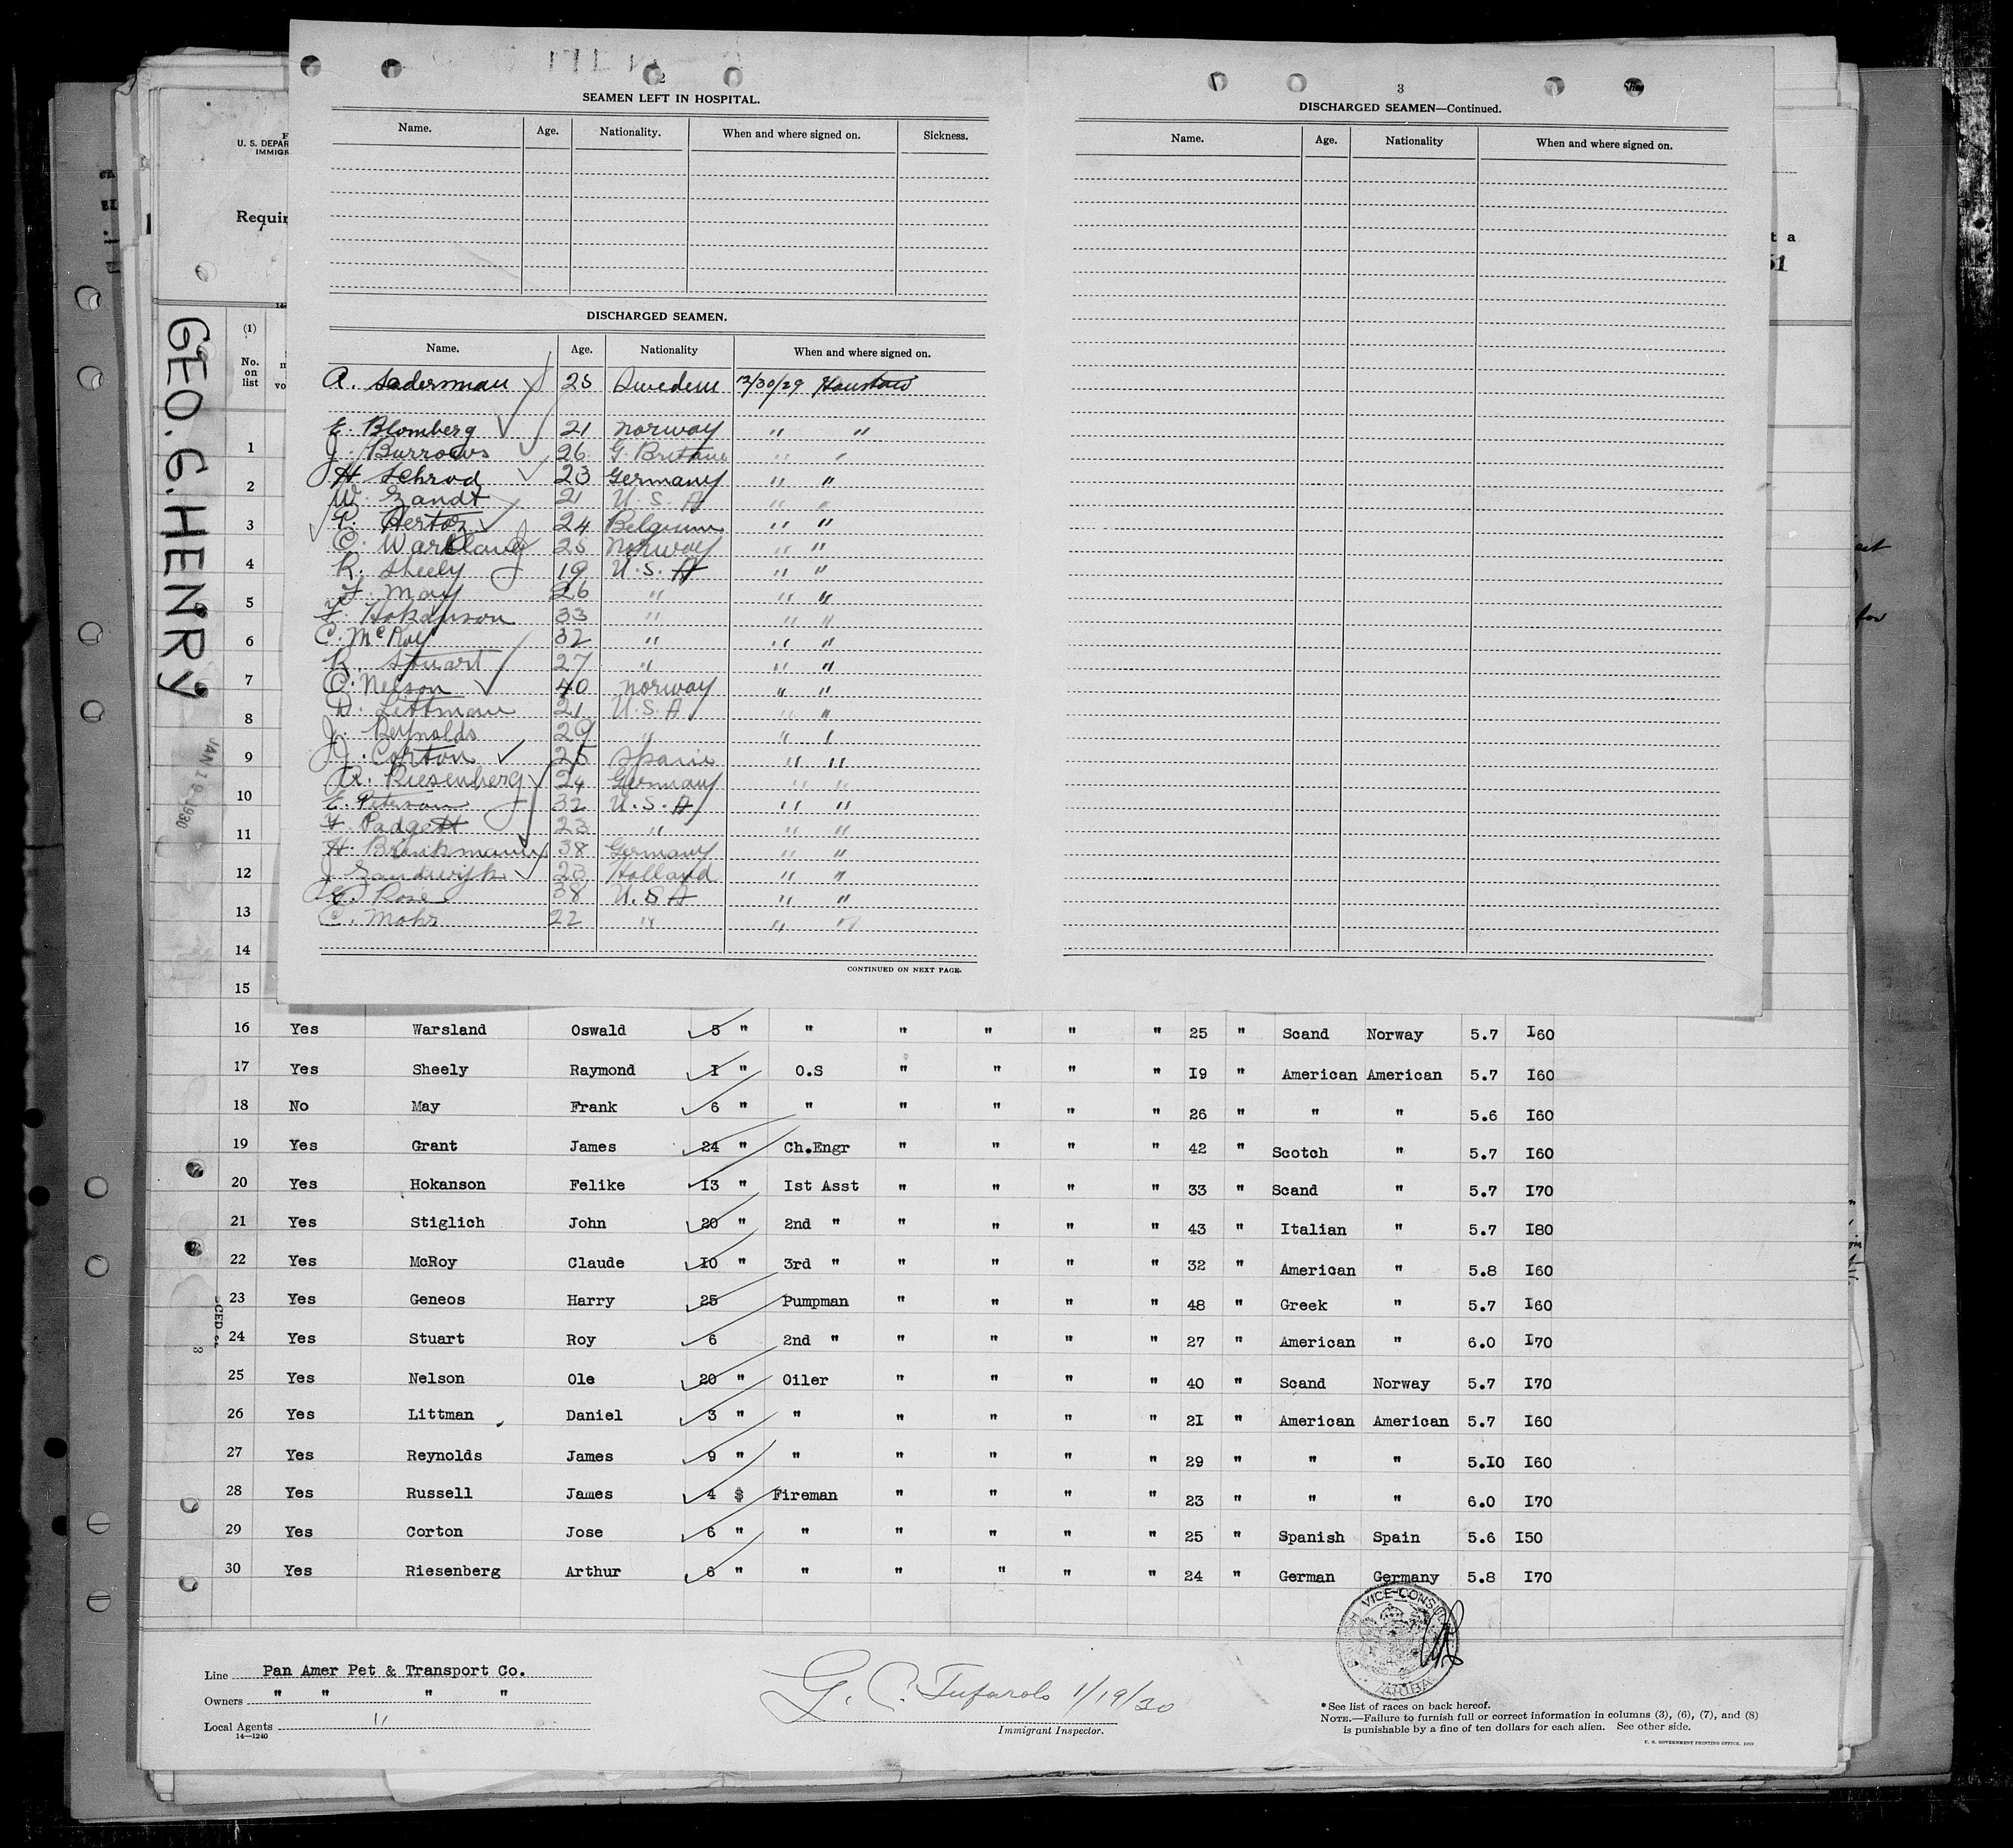 2
SEAMEN LEFT IN HOSPITAL.
Name. Age. Nationality. When and where signed on. Sickness.
DISCHARGED SEAMEN.
Name. Age. Nationality When and where signed on.
A. Saderman 25 Sweden 12/30/29 Houston
E. Blomberg 21 Norway " "
J. Burrows 26 G. Britain " "
H. Schrod 23 Germany " "
W. Zandt 21 U.S.A " "
P. Hertoz 24 Belgium " "
O. Warsland 25 Norway " "
R. Sheely 19 U.S.A " "
F. May 26 " " "
F. Hokanson 33 " " "
C. McRoy 32 " " "
R. Stuart 27 " " "
O. Nelson 40 Norway " "
D. Littman 21 U.S.A " "
J. Reynolds 29 " " "
J. Corton 25 Spain " "
A. Riesenberg 24 Germany " "
E. Peterson 32 U.S.A " "
F. Padgett 23 " " "
H. Brinkmann 38 Germany " "
J. Zandwijk 23 Holland " "
E. Rose 38 U.S.A " "
C. Mohr 22 " " "
CONTINUED ON NEXT PAGE.
3
DISCHARGED SEAMEN—Continued.
Name. Age. Nationality When and where signed on.
U. S. DEPAR
IMMIGR
Requir
t a
51
GEO. G. HENRY
JAN 19 1930
(1)
No.
on
list
1
2
3
4
5
6
7
8
9
10
11
12
13
14
15
16 Yes Warsland Oswald 5 " " " " " " 25 " Scand Norway 5.7 I60
17 Yes Sheely Raymond I " O.S " " " " I9 " American American 5.7 I60
18 No May Frank 6 " " " " " " 26 " " " 5.6 I60
19 Yes Grant James 24 " Ch.Engr " " " " 42 " Scotch " 5.7 I60
20 Yes Hokanson Felike I3 " Ist Asst " " " " 33 " Scand " 5.7 I70
21 Yes Stiglich John 20 " 2nd " " " " " 43 " Italian " 5.7 I80
22 Yes McRoy Claude IO " 3rd " " " " " 32 " American " 5.8 I60
23 Yes Geneos Harry 25 Pumpman " " " " 48 " Greek " 5.7 I60
24 Yes Stuart Roy 6 2nd " " " " " 27 " American " 6.0 I70
25 Yes Nelson Ole 20 " Oiler " " " " 40 " Scand Norway 5.7 I70
26 Yes Littman Daniel 3 " " " " " " 2I " American American 5.7 I60
27 Yes Reynolds James 9 " " " " " " 29 " " " 5.I0 I60
28 Yes Russell James 4 $ Fireman " " " " 23 " " " 6.0 I70
29 Yes Corton Jose 6 " " " " " " 25 " Spanish Spain 5.6 I50
30 Yes Riesenberg Arthur 6 " " " " " " 24 " German Germany 5.8 I70
VICE-CONSUL
ARUBA
Line Pan Amer Pet & Transport Co.
Owners " " " "
Local Agents "
14—1240
G. C. Tufarolo 1/19/30
Immigrant Inspector.
*See list of races on back hereof.
NOTE.—Failure to furnish full or correct information in columns (3), (6), (7), and (8)
is punishable by a fine of ten dollars for each alien. See other side.
U. S. GOVERNMENT PRINTING OFFICE. 1929